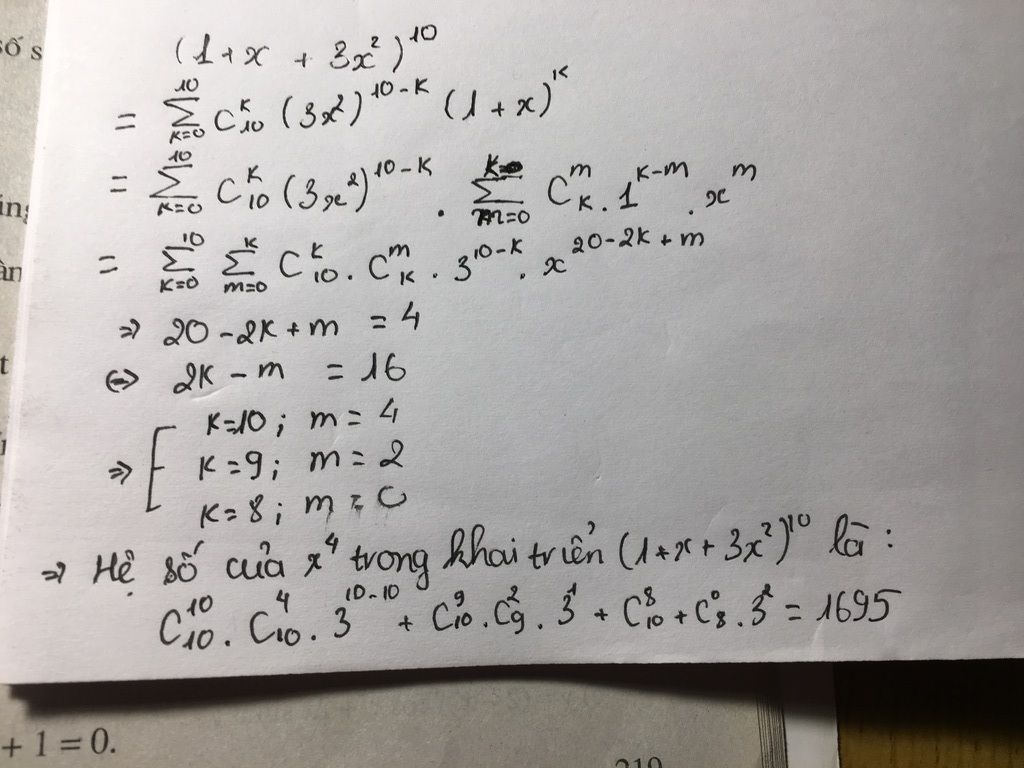 số s
(1 + x + 3x²)¹⁰
= ∑_{k=0}^{10} C_{10}^{k} (3x²)^{10-k} (1 + x)^{k}
= ∑_{k=0}^{10} C_{10}^{k} (3x²)^{10-k} . ∑_{m=0}^{k} C_{k}^{m} . 1^{k-m} . x^{m}
= ∑_{k=0}^{10} ∑_{m=0}^{k} C_{10}^{k} . C_{k}^{m} . 3^{10-k} . x^{20-2k+m}
=> 20 - 2k + m = 4
<=> 2k - m = 16
=> [ k=10 ; m = 4
k = 9 ; m = 2
k = 8 ; m = 0
=> Hệ số của x⁴ trong khai triển (1 + x + 3x²)¹⁰ là :
C_{10}^{10} . C_{10}^{4} . 3^{10-10} + C_{10}^{9} . C_{9}^{2} . 3^{1} + C_{10}^{8} + C_{8}^{0} . 3^{2} = 1695
+ 1 = 0.